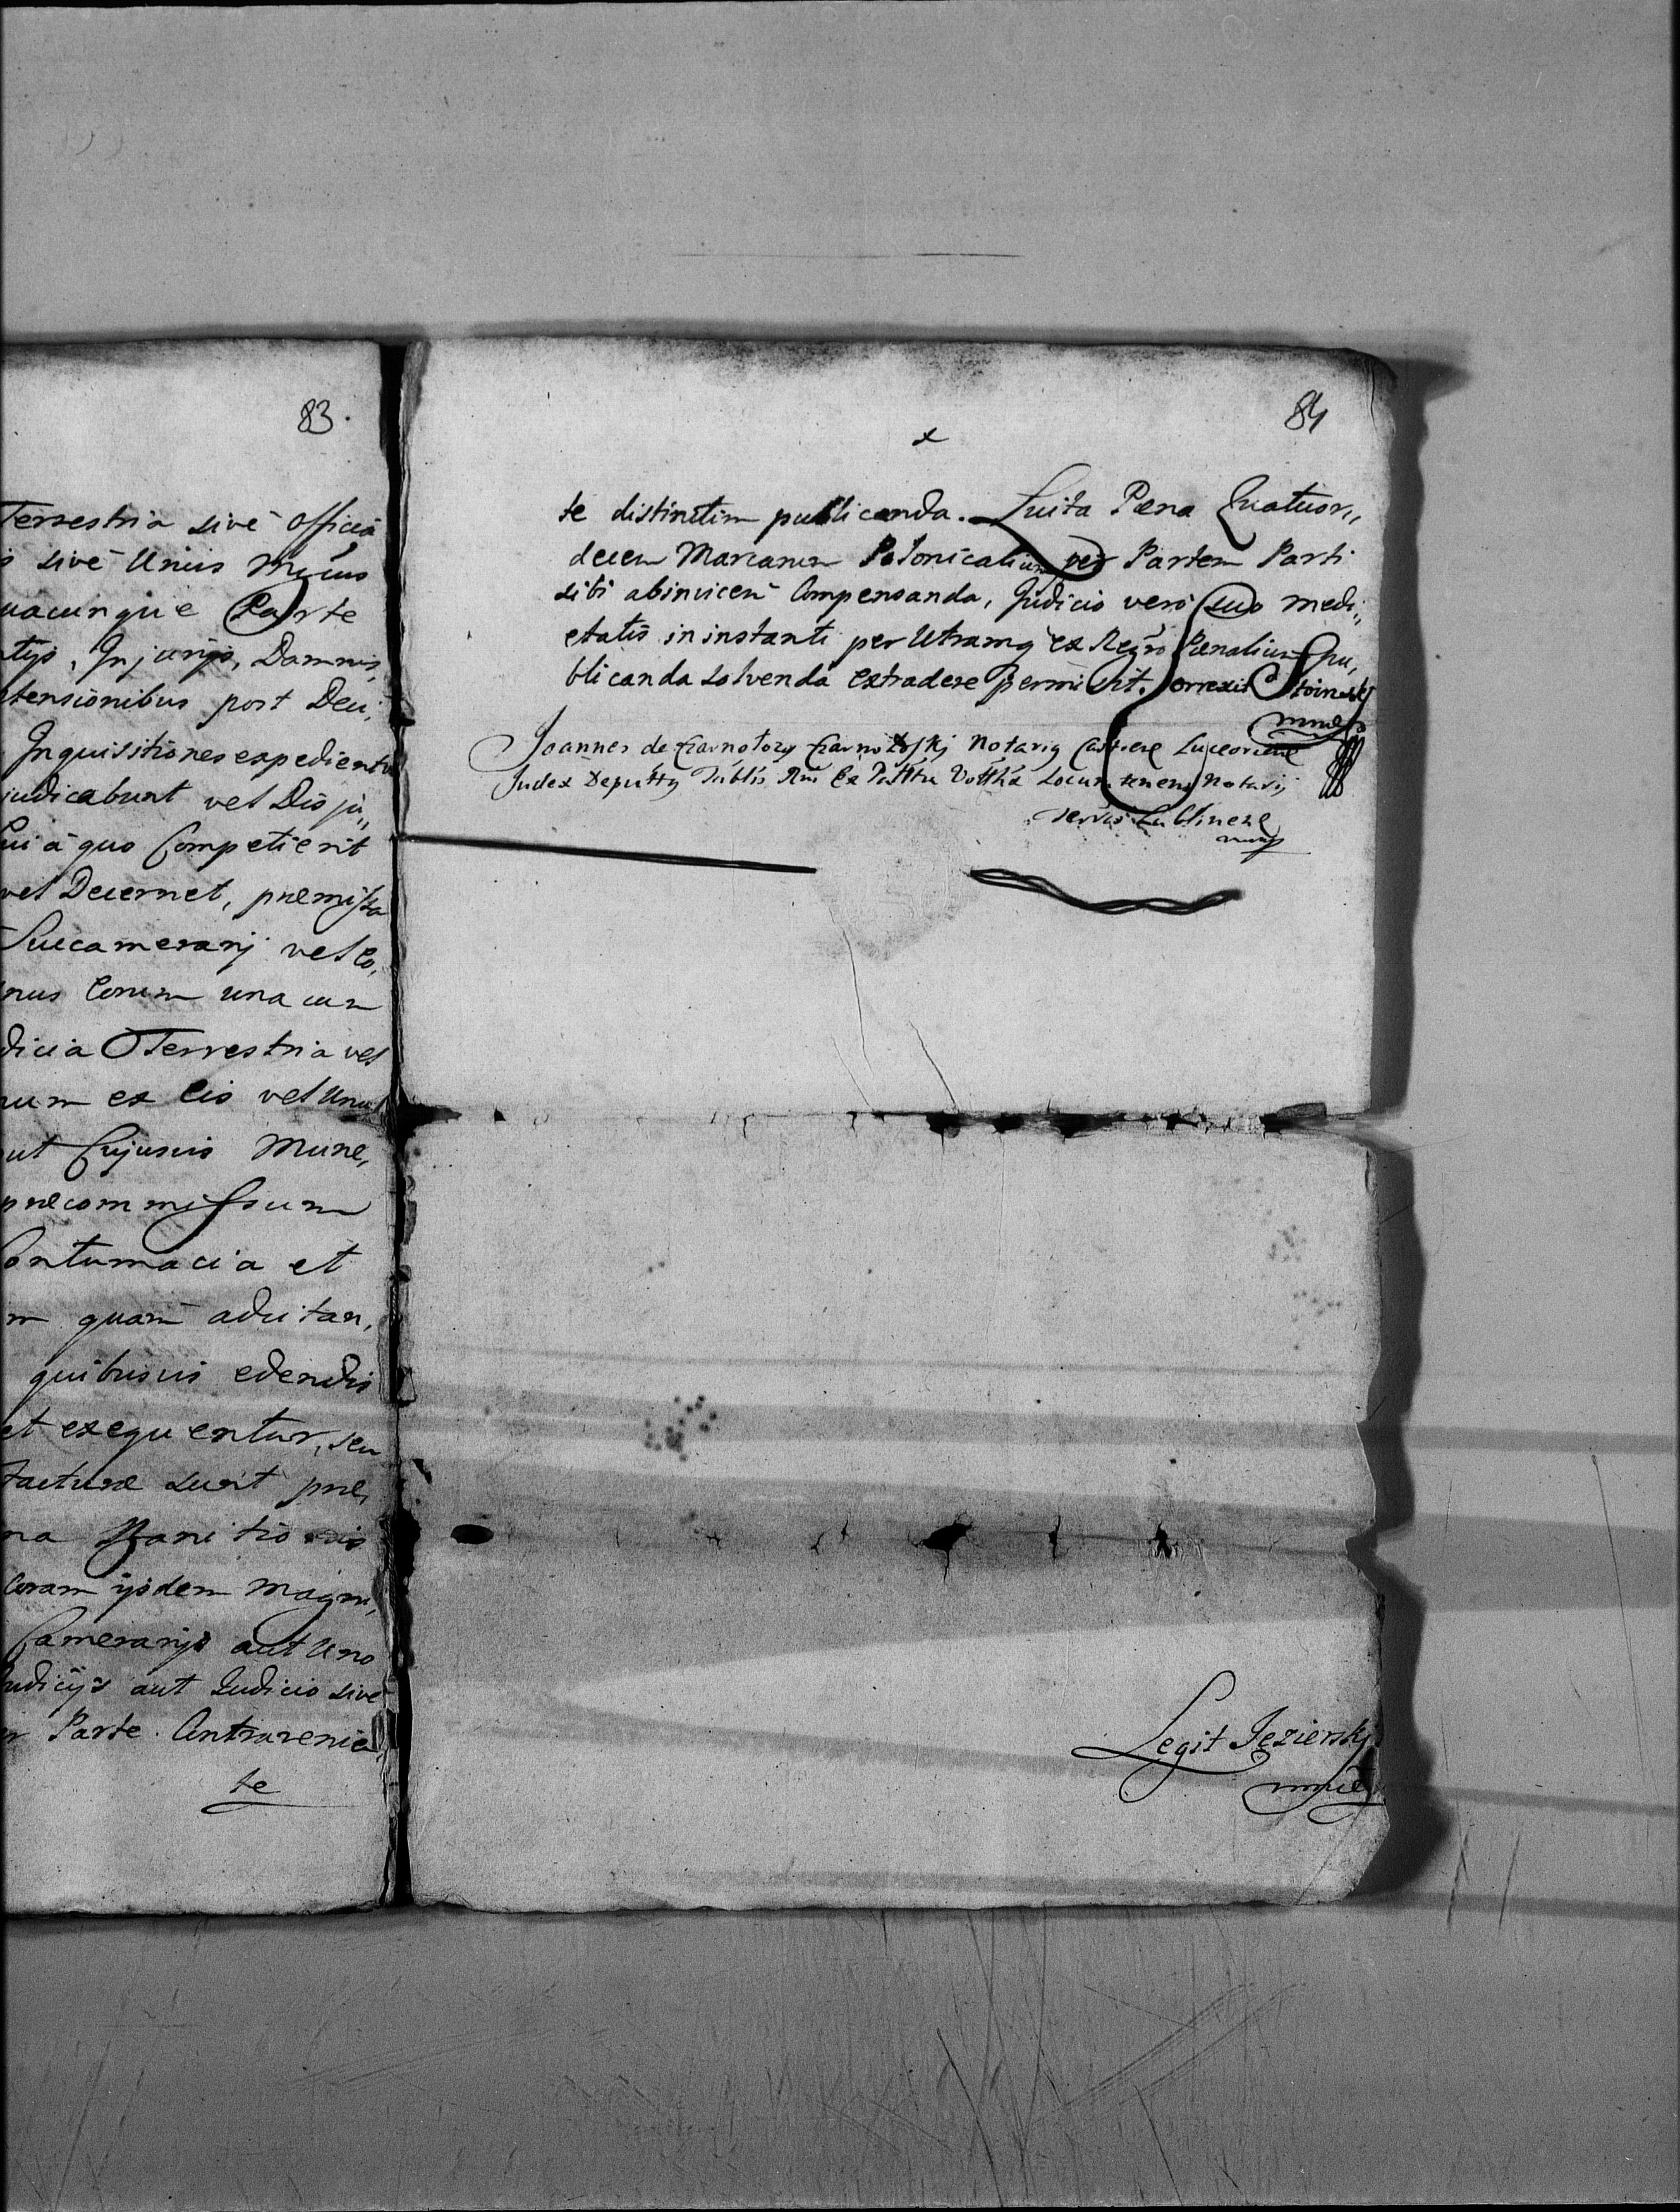 83.
Terrestria sivè Officia
sivè Unius
uacunque Parte
tijs, Injurijs, Damnis,
tensionibus post Deci,
Inquisitiones expedientu
judicabunt vel Disju,,
Cui à quo Competierit
vel Decernet, præmissa
Succamerarij vel Co,
nus Eorum una cum
dicia Terrestria vel
num ex Eis vel Unu
ut Cujusvis Mune,
præcommissum
Contumacia et
m quam adcitan,
quibusvis edendis
et exequentur, seu
facturæ sunt præ,
na Banitionis
Coram ijsdem Magni,
Camerarijs aut Uno
Judicijs aut Judicio sivè
Parte Contravenien
te
84
x
te distinctim publicanda. Luita Pæna Quatuor,,
decem Marcarum Polonicalium per Partem Parti
sibi abinvicem Compensanda, Judicio verò suo medi,,
etatis in instanti per Utramq ex Regro Pænalium pu,
blicanda solvenda extradere permisit. Correxit Stoinski
mmp
Joannes de Czarnolozy Czarnolozskj Notarig Castren Luceorien
Judex Deputtg Locum tenens Notarij
Terræ Lublinens
mmp
Legit Jezierskj
mmp